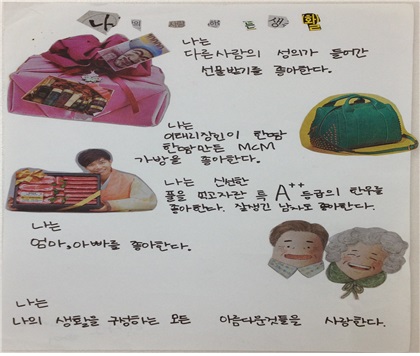 나 의 사 랑 하 는 생 활
나는
다른사람의 성의가 들어간
선물받기를 좋아한다.
나는
이태리장인이 한땀
한땀만든 MCM
가방을 좋아한다.
나는 신선한
풀을 먹고자란 특 A++ 등급의 한우를
좋아한다. 잘생긴 남자도 좋아한다.
나는
엄마,아빠를 좋아한다.
나는
나의 생활을 구성하는 모든 아름다운것들을 사랑한다.